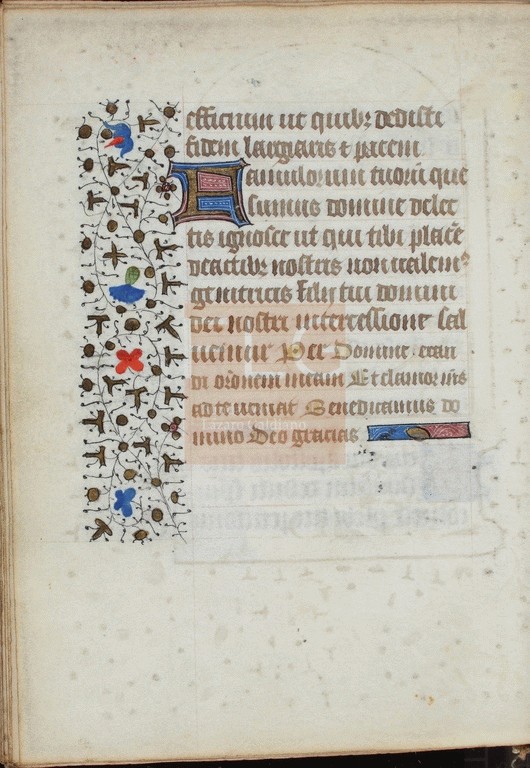 effectum ut quibꝫ dediſti
fidem largiaris ⁊ pacem
Famulorum tuoꝝ que
ſumus domine delic
tis ignoſce ut qui tibi place
de actibꝫ noſtris non ualemꝰ
genitricis Filij tui domini
dei noſtri interceſſione ſal
uemur Per Domine. exau
di oroꝛnem meam Et clamor mꝰs
ad te ueniat Benedicamus do
mino Deo gracias
LG
Lázaro Galdiano